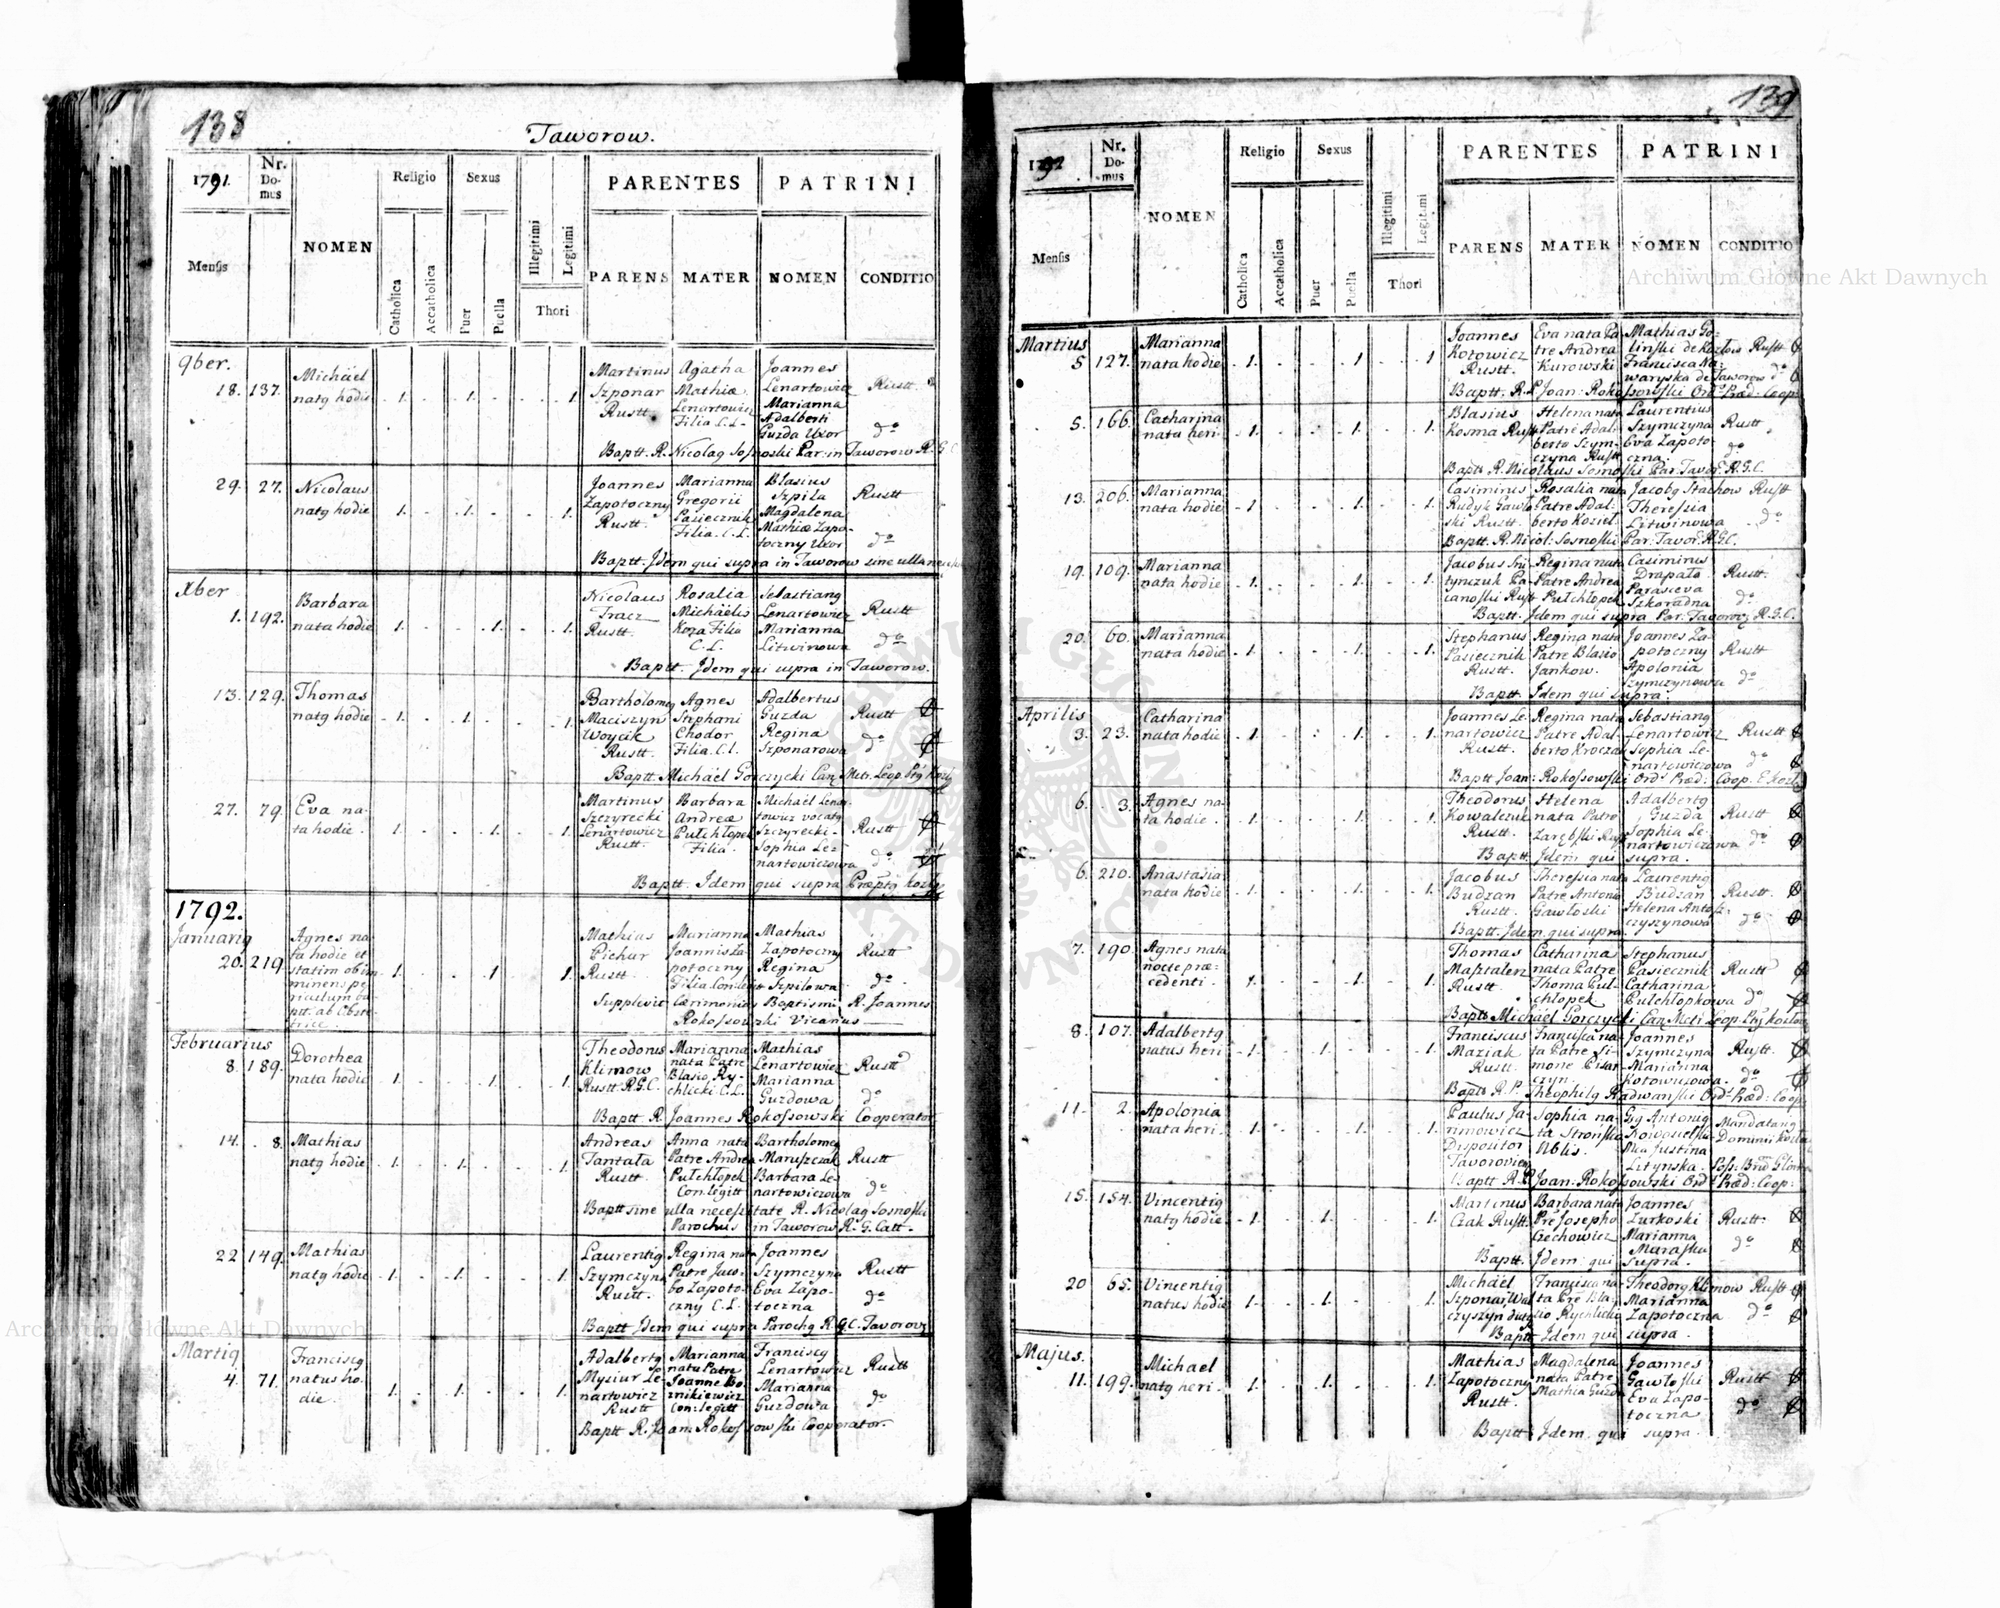 138
Taworow.
1791.
Nr. Do- mus
Mensis
NOMEN
Religio
Catholica
Accatholica
Sexus
Puer
Puella
Illegitimi
Legitimi
Thori
PARENTES
PATRINI
PARENS
MATER
NOMEN
CONDITIO
9ber.
18. 137. Michäel natg hodie 1. 1. 1.
Martinus Szponar Rustt.
Agatha Mathiæ Lenartowicz Filia C.L.
Joannes Lenartowicz Marianna Adalberti Guzda Uxor
Rustt. do
Baptt. R. Nicolag Sosnoski Par. in Taworow R.G.C.
29. 27. Nicolaus natg hodie 1. 1. 1.
Joannes Zapotoczny Rustt.
Marianna Gregorii Pasiecznik Filia C.L.
Blasius Szpila Magdalena Mathiæ Zapotoczny Uxor
Rustt do
Baptt. Jdem qui supra in Taworow sine ulla
Xber
1. 192. Barbara nata hodie 1. 1. 1.
Nicolaus Tracz Rustt.
Rosalia Michäelis Koza Filia C.L.
Sebastiang Lenartowicz Marianna Litwinowa
Rustt do
Baptt. Jdem qui supra in Taworow.
13. 129. Thomas natg hodie 1. 1. 1.
Bartholomeg Maciszyn Woycik Rustt.
Agnes Stephani Chodor Filia. C.L.
Adalbertus Guzda Regina Szponarowa
Rustt do
Baptt. Michäel Gorczycki Can. Metr. Leop. Ptg Kozl
27. 79. Eva nata hodie. 1. 1. 1.
Martinus Szczyrecki Lenartowicz Rustt.
Barbara Andreæ Pułchłopek Filia.
Michäel Lenartowicz vocatg Szczyrecki. Sophia Lenartowiczowa
Rustt do
Baptt. Idem qui supra Præptg Kozl
1792.
Januarig
20. 219 Agnes nata hodie et statim ob imminens periculum baptt. ab Obstetrice. 1. 1. 1.
Mathias Pichur Rustt.
Marianna Joannis Zapotoczny Filia Con. legitt
Mathias Zapotoczny Regina Szpilowa
Rustt do
Supplevit Cærimonias Baptismi R. Joannes
Rokossowski Vicarius
Februarius
8. 189. Dorothea nata hodie 1. 1. 1.
Theodorus Klimow Rustt R.G.C.
Marianna nata Patre Blasio Rychlicki C.L.
Mathias Lenartowicz Marianna Guzdowa
Rustt do
Baptt R. Joannes Rokossowski Cooperator
14. 8. Mathias natg hodie 1. 1. 1.
Andreas Tantała Rustt.
Anna nata Patre Andrea Pułchłopek Con. legitt
Bartholomeg Maruszczak Barbara Lenartowiczowa
Rustt do
Baptt sine ulla necessitate R. Nicolag Sosnoski
Parochus in Taworow R. G. Catt.
22 149. Mathias natg hodie 1. 1. 1.
Laurentig Szymczyna Rustt.
Regina nata Patre Jacobo Zapotoczny C.L.
Joannes Szymczyna Eva Zapotoczna
Rustt do
Baptt Jdem qui supra Parochg R.G.C. Taworow
Martig
4. 71. Franciscg natus hodie. 1. 1. 1.
Adalbertg Mysiur Lenartowicz Rustt
Marianna nata Patre Joanne Con: legitt
Franciscg Lenartowicz Marianna Guzdowa
Rustt do
Baptt R. Joan. Rokossowski Cooperator.
139
1792
Nr. Do- mus
Mensis
NOMEN
Religio
Catholica
Accatholica
Sexus
Puer
Puella
Illegitimi
Legitimi
Thori
PARENTES
PATRINI
PARENS
MATER
NOMEN
CONDITIO
Martius
5 127. Marianna nata hodie 1. 1. 1.
Joannes Kotowicz Rustt.
Eva nata Patre Andrea Kurowski
Mathias Goliński de Kozlow Francisca Nawaryska de Taworow
Rustt do
Baptt. R.P. Joan. Rokossowski Ord. Præd. Coop.
5. 166. Catharina nata heri. 1. 1. 1.
Blasius Kosma Rustt
Helena nata Patre Adalberto Szymczyna Rustt
Laurentius Szymczyna Eva Zapotoczna.
Rustt do
Baptt R. Nicolaus Sosnoski Par. Tawor. R.G.C.
13. 206. Marianna nata hodie 1. 1. 1.
Casimirus Rudyk Gawłoski Rustt.
Rosalia nata Patre Adalberto Kozieł
Jacobg Stachow Theressia Litwinowa
Rustt do
Baptt. R. Nicol. Sosnoski Par. Tawor. R.G.C.
19. 109. Marianna nata hodie 1. 1. 1.
Regina nata Patre Andrea Pułchłopek
Casimirus Drapała Parasceva Szkoradna
Rustt. do
Baptt. Jdem qui supra Par. Taworow R.G.C.
20. 60. Marianna nata hodie 1. 1. 1.
Stephanus Pasiecznik Rustt.
Regina nata Patre Blasio Jankow.
Joannes Zapotoczny Apolonia Szymczynowa
Rustt do
Baptt. Jdem qui supra.
Aprilis
3. 23. Catharina nata hodie 1. 1. 1.
Joannes Lenartowicz Rustt.
Regina nata Patre Adalberto Kroczak
Sebastiang Lenartowicz Sophia Lenartowiczowa
Rustt do
Baptt Joan: Rokossowski Ord: Præd: Coop.
6. 3. Agnes nata hodie. 1. 1. 1.
Theodorus Kowalczuk Rustt.
Helena nata Patre Zarębski Rustt
Adalbertg Guzda Sophia Lenartowiczowa
Rustt do
Baptt. Jdem qui supra.
6. 210. Anastasia nata hodie 1. 1. 1.
Jacobus Budzan Rustt.
Theressia nata Patre Antonio Gawłoski
Laurentig Budzan Helena
Rustt. do
Baptt. Jdem. qui supra
7. 190. Agnes nata nocte præcedenti. 1. 1. 1.
Thomas Maztalerz Rustt.
Catharina nata Patre Thoma Pulchłopek
Stephanus Pasiecznik Catharina Pulchłopkowa
Rustt do
Baptt Michäel Gorczycki Can Mcti Leop. Ptg Kozlow
8. 107. Adalbertg natus heri 1. 1. 1.
Franciscus Maziak Rustt.
Francisca nata Patre Simone
Joannes Szymczyna Marianna Kotowiczowa.
Rustt. do
Baptt R. P. Theophilg Radwański Ord: Præd: Coop
11. 2. Apolonia nata heri. 1. 1. 1.
Paulus Jarimowicz Dispositor Taworoviens
Sophia nata Strońska Nblis.
Gsg Antonig Kowosielski Mca Justina Litynska.
Mandatarg Dominii Kozlow
Baptt R.P. Joan: Rokossowski Ord: Præd: Coop:
15. 154. Vincentig natg hodie 1. 1. 1.
Martinus Czak Rustt.
Barbara nata Pre Josepho Czechowicz
Joannes Zurkoski Marianna Muraska
Rustt. do
Baptt. Jdem qui supra.
20 65. Vincentig natus hodie 1. 1. 1.
Michäel Szponar
Francisca nata Pre Blasio Rychlicki
Theodorg Klimow Marianna Zapotoczna
Rustt do
Baptt Jdem qui supra.
Majus.
11. 199. Michael natg heri. 1. 1. 1.
Mathias Zapotoczny Rustt.
Magdalena nata Patre Mathia Guzda
Joannes Gawłoski Eva Zapotoczna
Rustt do
Baptt. Jdem qui supra.
Archiwum Główne Akt Dawnych
Archiwum Główne Akt Dawnych